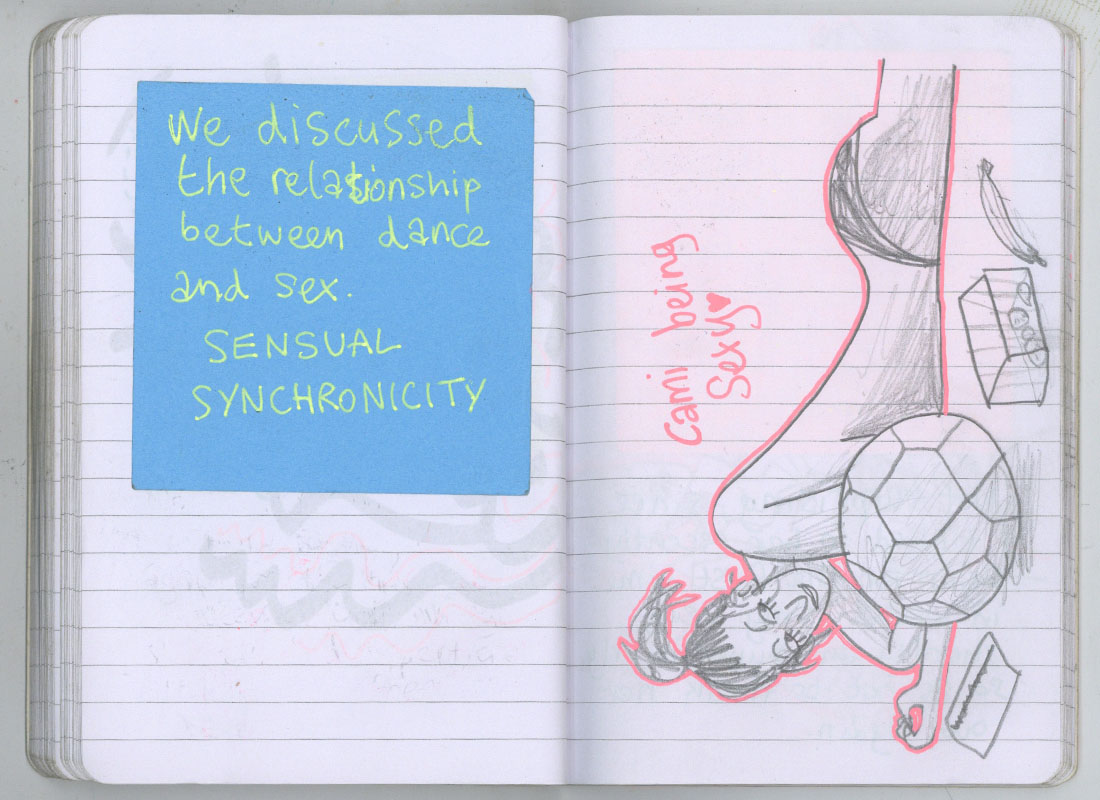 We discussed
the relationship
between dance
and sex.
SENSUAL
SYNCHRONICITY
Cami being
Sexy♥